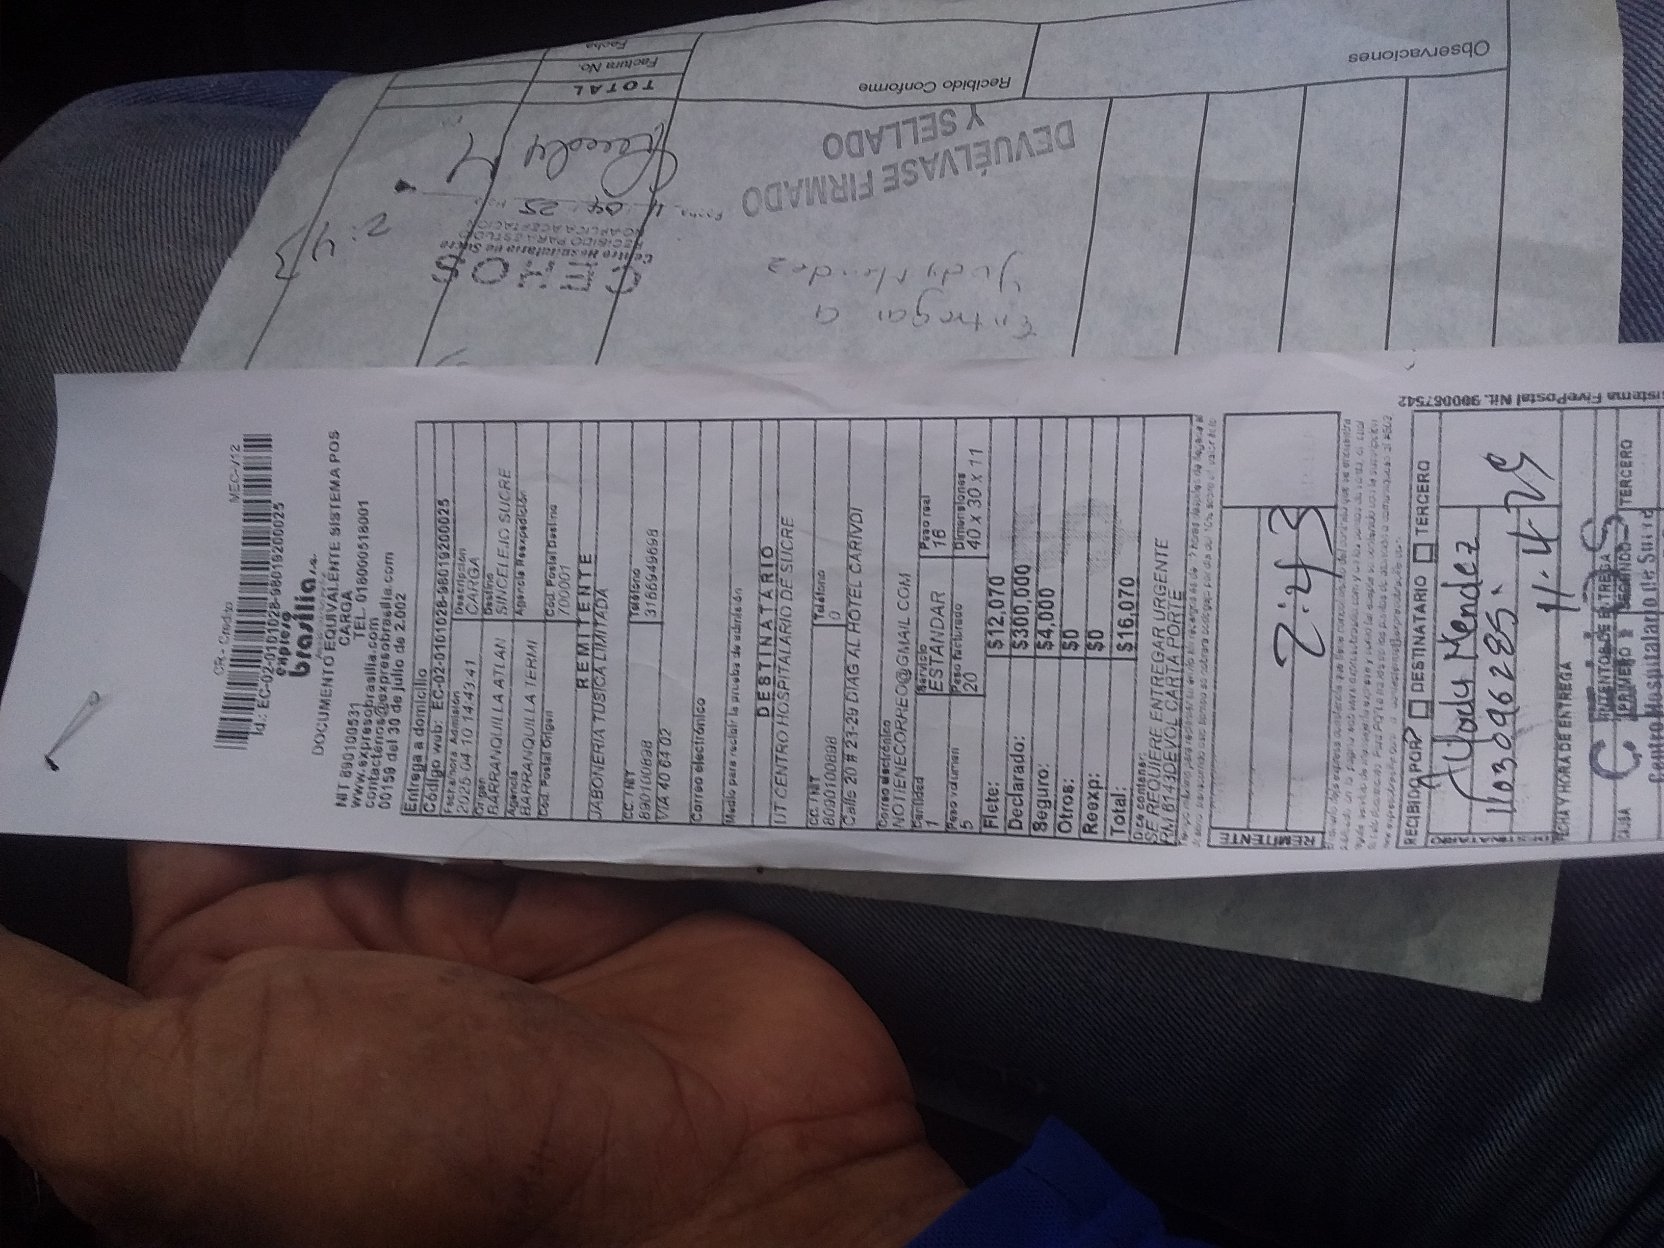 CR - Credito
MEC-V12
Id.: EC-02-0101028-98019200025
expreso
brasilia s.a.
DOCUMENTO EQUIVALENTE SISTEMA POS
CARGA
NIT 890100531 TEL. 018000518001
www.expresobrasilia.com
contactenos@expresobrasilia.com
00159 del 30 de julio de 2.002
Entrega a domicilio
Código web: EC-02-0101028-98019200025
Fecha/Hora Admisión
2025-04-10 14:43:41
Descripción
CARGA
Origen
BARRANQUILLA ATLAN
Destino
SINCELEJO SUCRE
Agencia
BARRANQUILLA TERMI
Agencia Reexpedición
Cod. Postal Origen
Cod. Postal Destino
700001
REMITENTE
JABONERIA TUSICA LIMITADA
CC / NIT
890100898
Teléfono
3166949698
VIA 40 64 02
Correo electrónico
Medio para recibir la prueba de admisión
DESTINATARIO
UT CENTRO HOSPITALARIO DE SUCRE
CC. / NIT
8090100898
Teléfono
0
Calle 20 # 23-29 DIAG AL HOTEL CARIVDI
Correo electrónico
NOTIENECORREO@GMAIL.COM
Cantidad
1
Servicio
ESTANDAR
Peso real
16
Peso volumen
5
Peso facturado
20
Dimensiones
40 x 30 x 11
Flete: $12,070
Declarado: $300,000
Seguro: $4,000
Otros: $0
Reexp: $0
Total: $16,070
Dice contener:
SE REQUIERE ENTREGAR URGENTE
RM 6143DEVOL CARTA PORTE
REMITENTE
2:43
RECIBIDO POR? DESTINATARIO TERCERO
Yudy Mendez
1103096285.
FECHA Y HORA DE ENTREGA
11-4-25
INTENTOS DE ENTREGA
PRIMERO SEGUNDO TERCERO
CAUSA
Centro Hospitalario de Sucre
Sistema FivePostal Nit. 900067542
Observaciones
Recibido Conforme
TOTAL
Factura No.
Fecha
DEVUÉLVASE FIRMADO
Y SELLADO
Entregar a
Yudy Mendez
Centro Hospitalario de Sucre
RECIBIDO PARA ESTUDIO
NO APLICA ACEPTACION
11 04 25
2:43